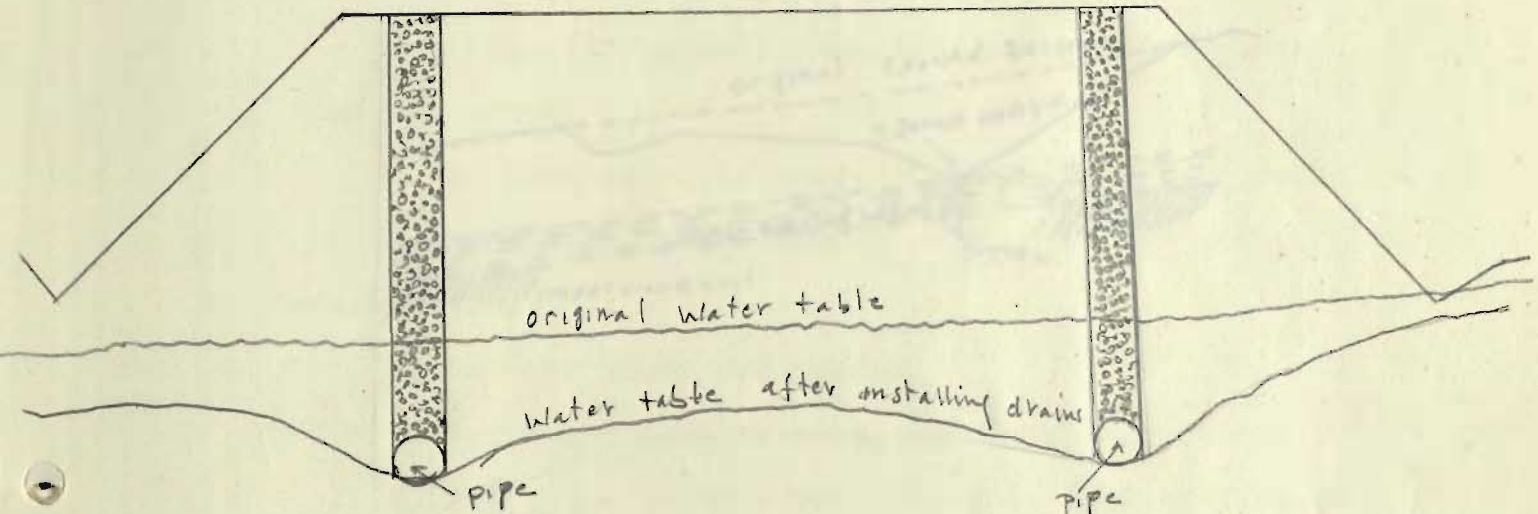 original water table
water table after installing drains
pipe
pipe